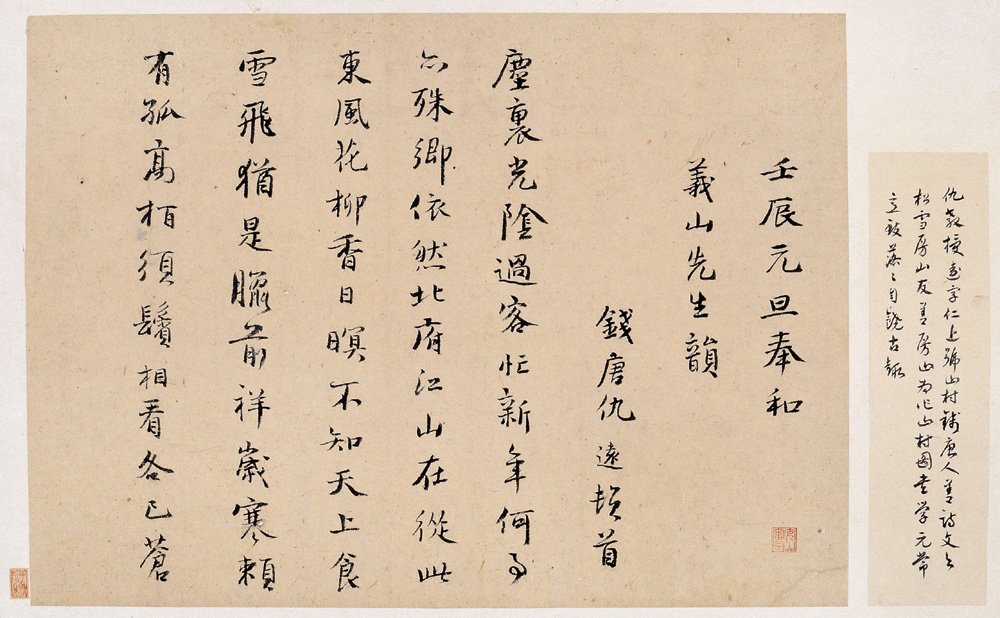 仇教授遠字仁近號山村錢唐人善詩文與
松雪房山友善房山為作山村圖書學元常
意致落々自饒古趣
壬辰元旦奉和
義山先生韻
錢唐仇遠頓首
塵裏光陰過客忙新年何事
亦殊鄉依然北府江山在從此
東風花柳香日暝不知天上食
雪飛猶是臘前祥歲寒賴
有孤高栢須鬢相看各已蒼